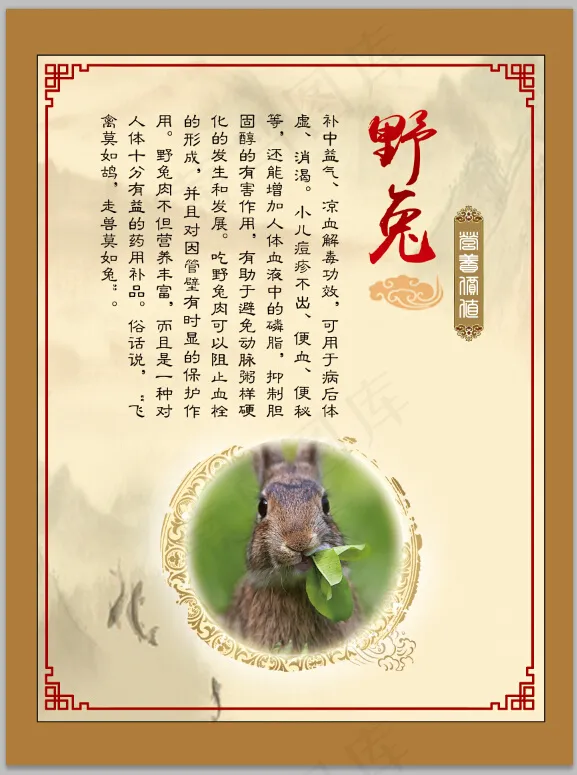 野兔
营养價值
补中益气、凉血解毒功效，可用于病后体
虚、消渴。小儿痘疹不出、便血、便秘
等，还能增加人体血液中的磷脂，抑制胆
固醇的有害作用，有助于避免动脉粥样硬
化的发生和发展。吃野兔肉可以阻止血栓
的形成，并且对因管壁有时显的保护作
用。野兔肉不但营养丰富，而且是一种对
人体十分有益的药用补品。俗话说，“飞
禽莫如鸪，走兽莫如兔”。